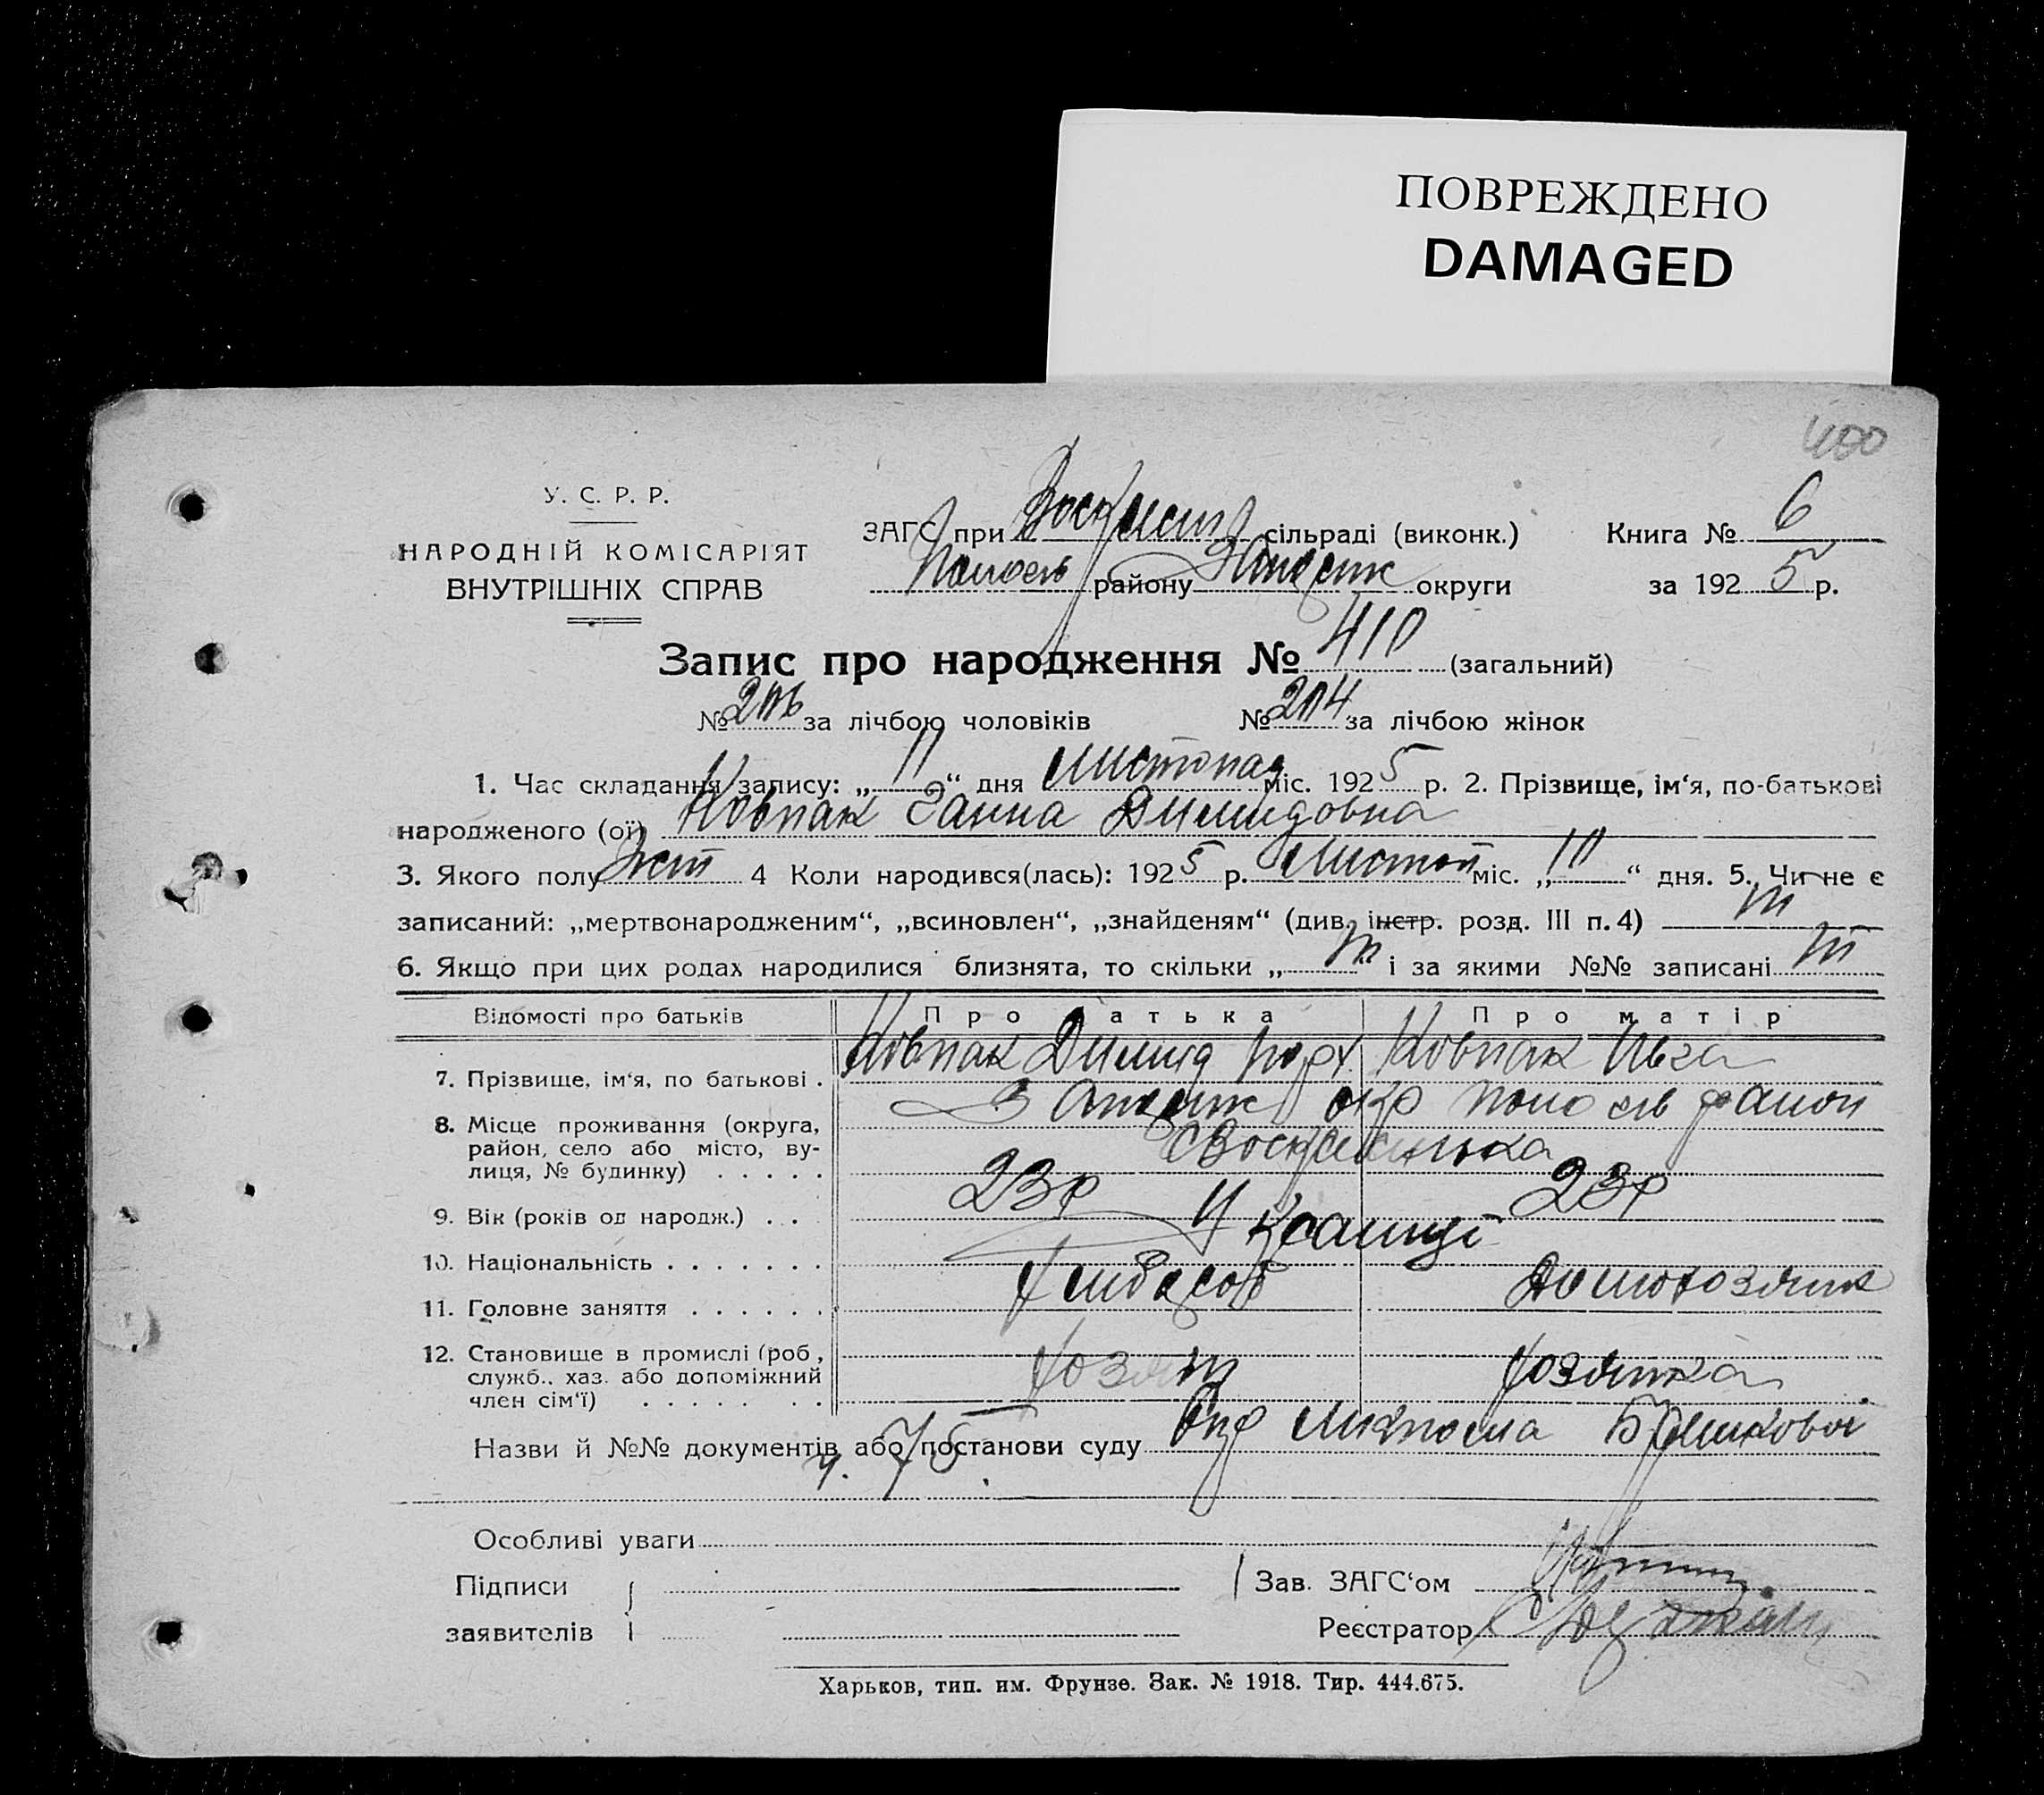 ПОВРЕЖДЕНО
DAMAGED
400
У. С. Р. Р.
НАРОДНІЙ КОМІСАРІЯТ
ВНУТРІШНІХ СПРАВ
ЗАГС при сільраді (виконк.)
району округи
Книга № 6
за 1925 р.
Запис про народження № 410 (загальний)
№ 206 за лічбою чоловіків № 204 за лічбою жінок
1. Час складання запису: „11“ дня Листопад міс. 1925 р. 2. Прізвище, ім‘я, по-батькові
народженого (ої) Ковпак Ганна Димидовна
3. Якого полу жін 4 Коли народився(лась): 1925 р. Листоп міс. „10“ дня. 5. Чи не є
записаний: „мертвонародженим“, „всиновлен“, „знайденям“ (див. інстр. розд. III п. 4)
6. Якщо при цих родах народилися близнята, то скільки „ “ і за якими №№ записані
Відомості про батьків Про батька Про матір
7. Прізвище, ім‘я, по батькові . Ковпак Димид Ковпак Ивга
8. Місце проживання (округа,
район, село або місто, ву-
лиця, № будинку) . . . . .
Запоріж окр район
с Воскресенька
9. Вік (років од народж.) . . 23р 23р
10. Національність . . . . . . . Українці
11. Головне заняття . . . . . . Хлібороб Домохозяйк
12. Становище в промислі (роб.,
служб., хаз. або допоміжний
член сім‘ї) . . . . . . .
хозяїн хозяйка
Назви й №№ документів або постанови суду
ч. 75.
Особливі уваги
Підписи
заявителів
Зав. ЗАГС‘ом
Реєстратор
Харьков, тип. им. Фрунзе. Зак. № 1918. Тир. 444.675.